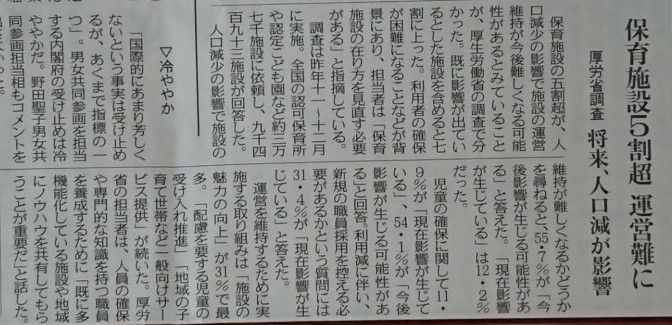 保育施設5割超 運営難に
厚労省調査 将来、人口減が影響
保育施設の五割超が、人
口減少の影響で施設の運営
維持が今後難しくなる可能
性があるとみていること
が、厚生労働省の調査で分
かった。既に影響が出てい
るとした施設を含めると七
割に上った。利用者の確保
が困難になることなどが背
景にあり、担当者は「保育
施設の在り方を見直す必要
がある」と指摘している。
調査は昨年十一〜十二月
に実施。全国の認可保育所
や認定こども園など約三万
七千施設に依頼し、九千四
百九十三施設が回答した。
人口減少の影響で施設の
維持が難しくなるかどうか
を尋ねると、55・7%が「今
後影響が生じる可能性があ
る」と答えた。「現在影響
が生じている」は12・2%
だった。
児童の確保に関して11・
9%が「現在影響が生じて
いる」、54・1%が「今後
影響が生じる可能性があ
る」と回答。利用減に伴い、
新規の職員採用を控える必
要があるかという質問には
31・4%が「現在影響が生
じている」と答えた。
運営を維持するために実
施する取り組みは「施設の
魅力の向上」が31%で最
多。「配慮を要する児童の
受け入れ推進」「地域の子
育て世帯など一般向けサー
ビス提供」が続いた。厚労
省の担当者は、人員の確保
や専門的な知識を持つ職員
を養成するために「既に多
機能化している施設や地域
にノウハウを共有してもら
うことが重要だ」と話した。
▽冷ややか
「国際的にあまり芳しく
ないという事実は受け止め
るが、あくまで指標の一
つ」。男女共同参画を担当
する内閣府の受け止めは冷
ややかだ。野田聖子男女共
同参画担当相もコメントを